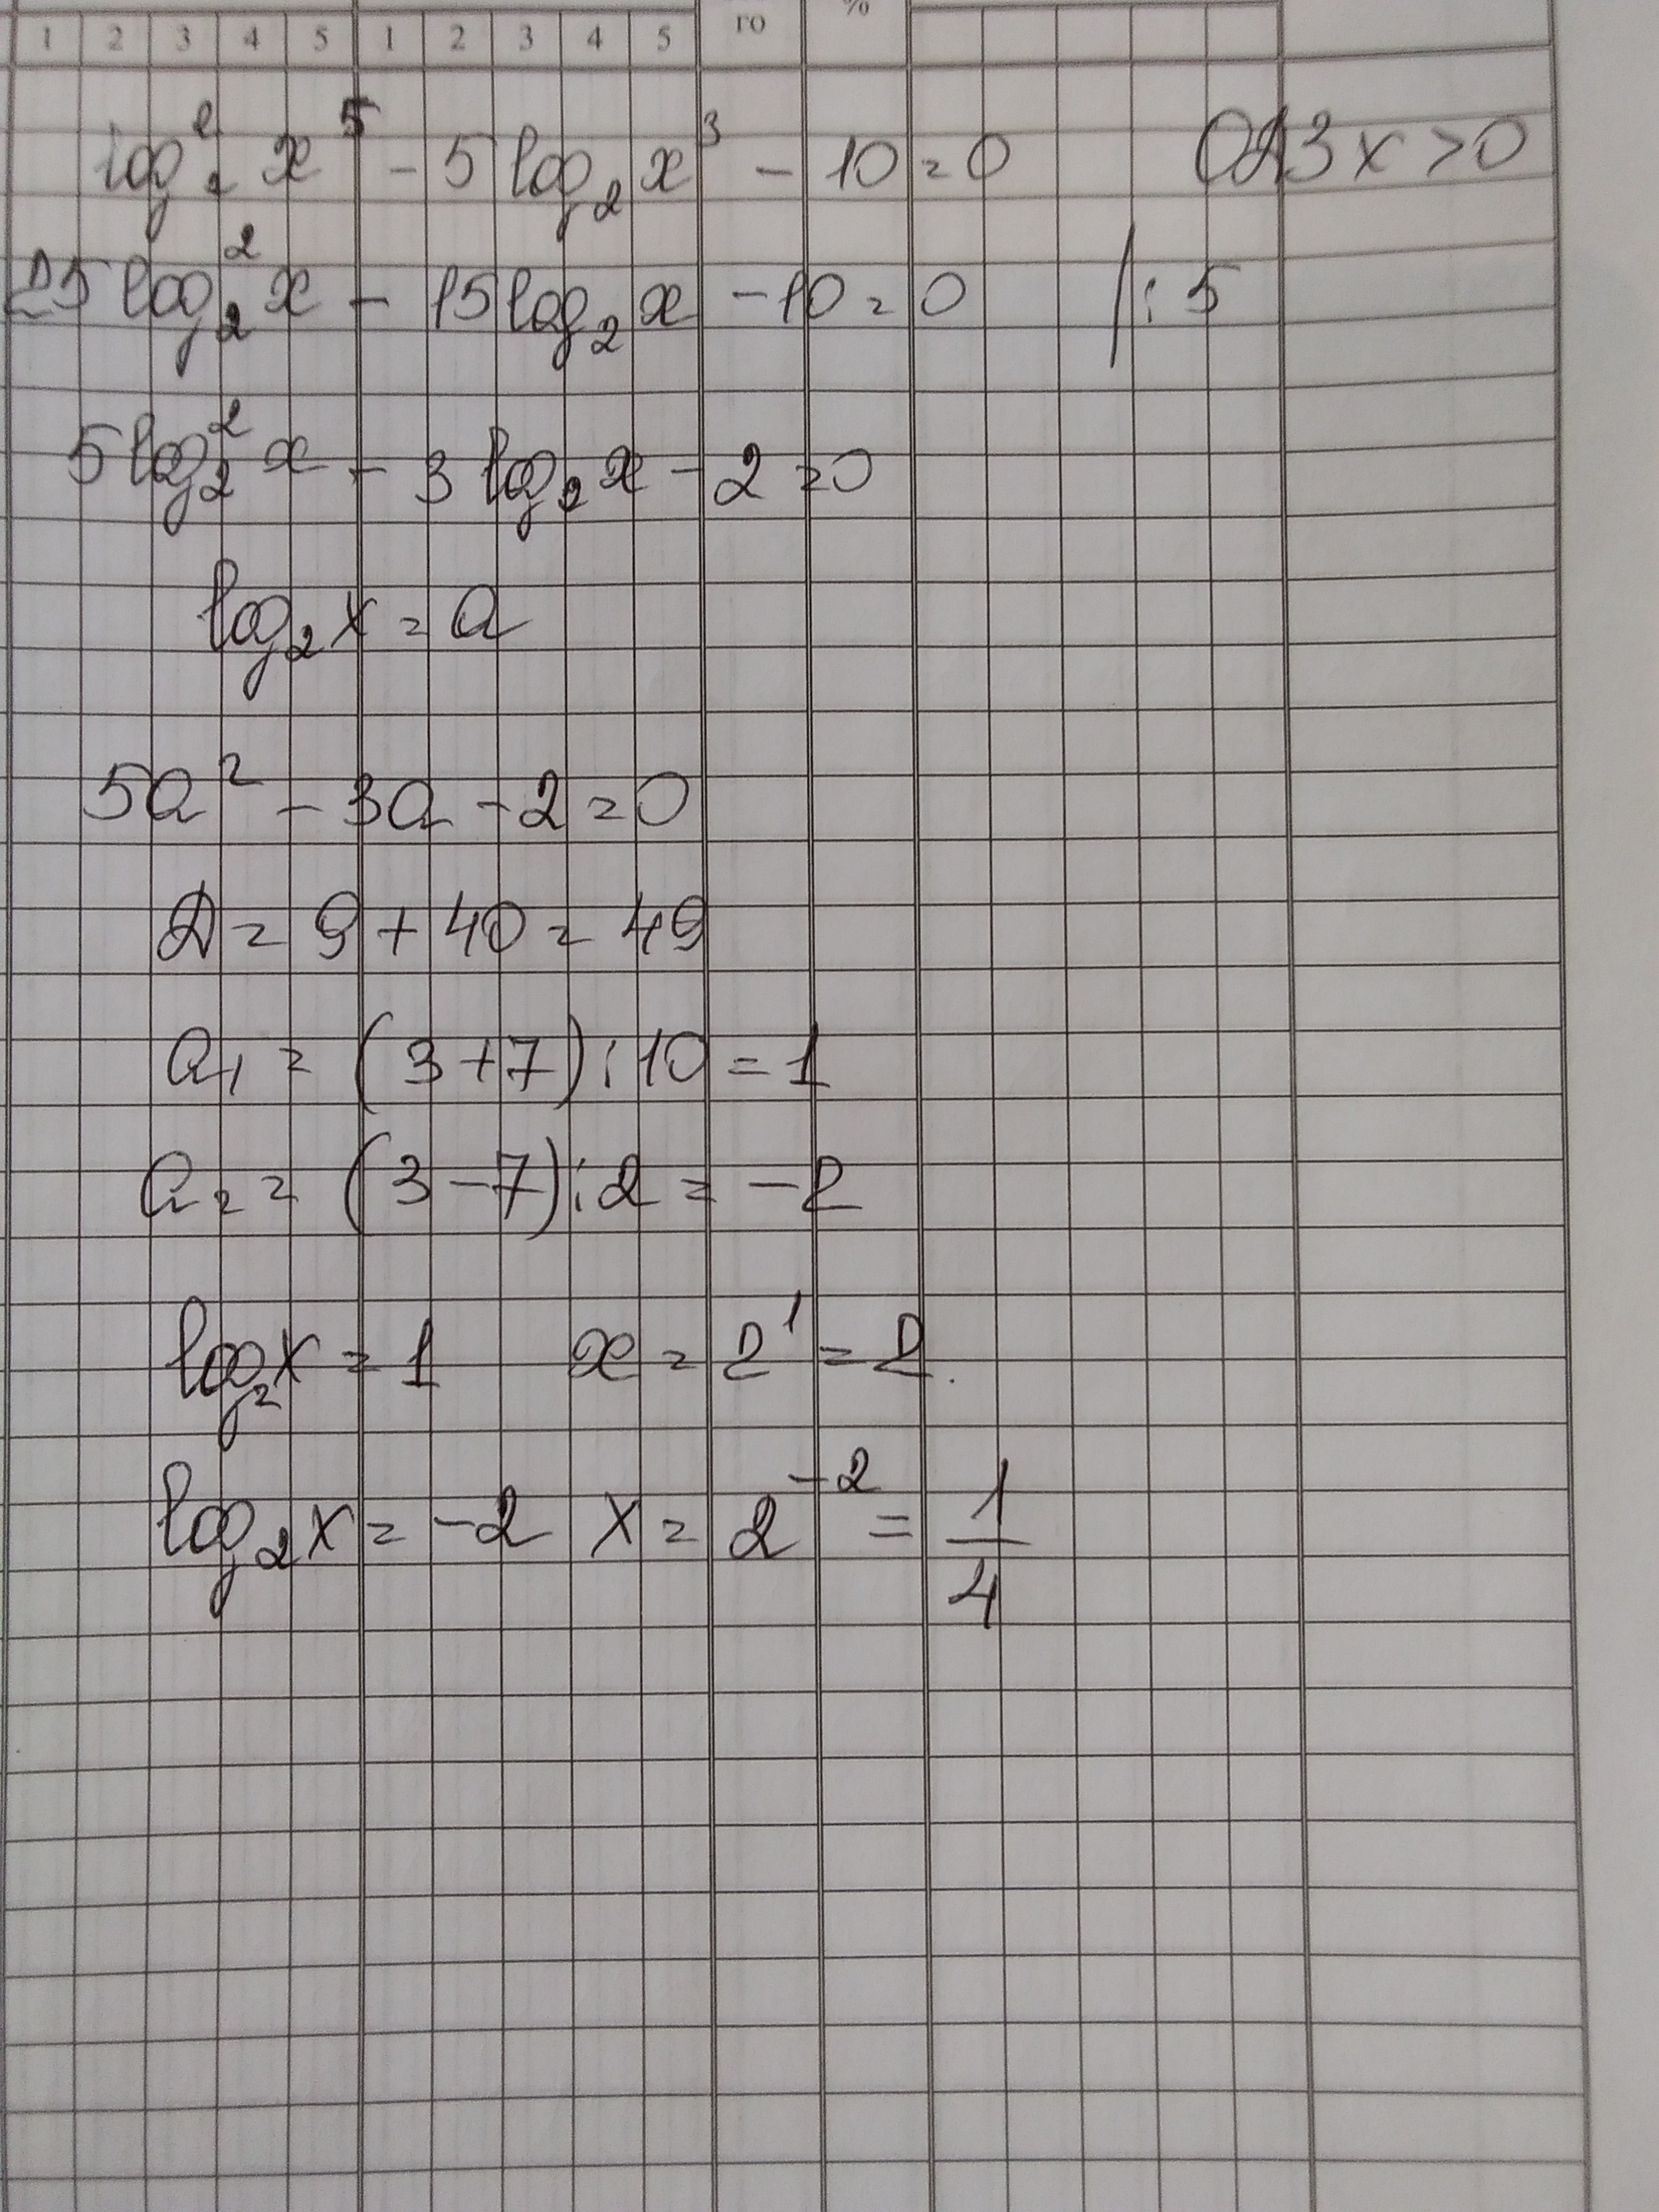 1 2 3 4 5 1 2 3 4 5 го %
log₂² x⁵ - 5 log₂ x³ - 10 = 0 ОДЗ x > 0
25 log₂² x - 15 log₂ x - 10 = 0 /: 5
5 log₂² x - 3 log₂ x - 2 = 0
log₂ x = a
5a² - 3a - 2 = 0
Д = 9 + 40 = 49
a₁ = (3 + 7) : 10 = 1
a₂ = (3 - 7) : 2 = -2
log₂ x = 1 x = 2¹ = 2.
log₂ x = -2 x = 2⁻² = 1/4